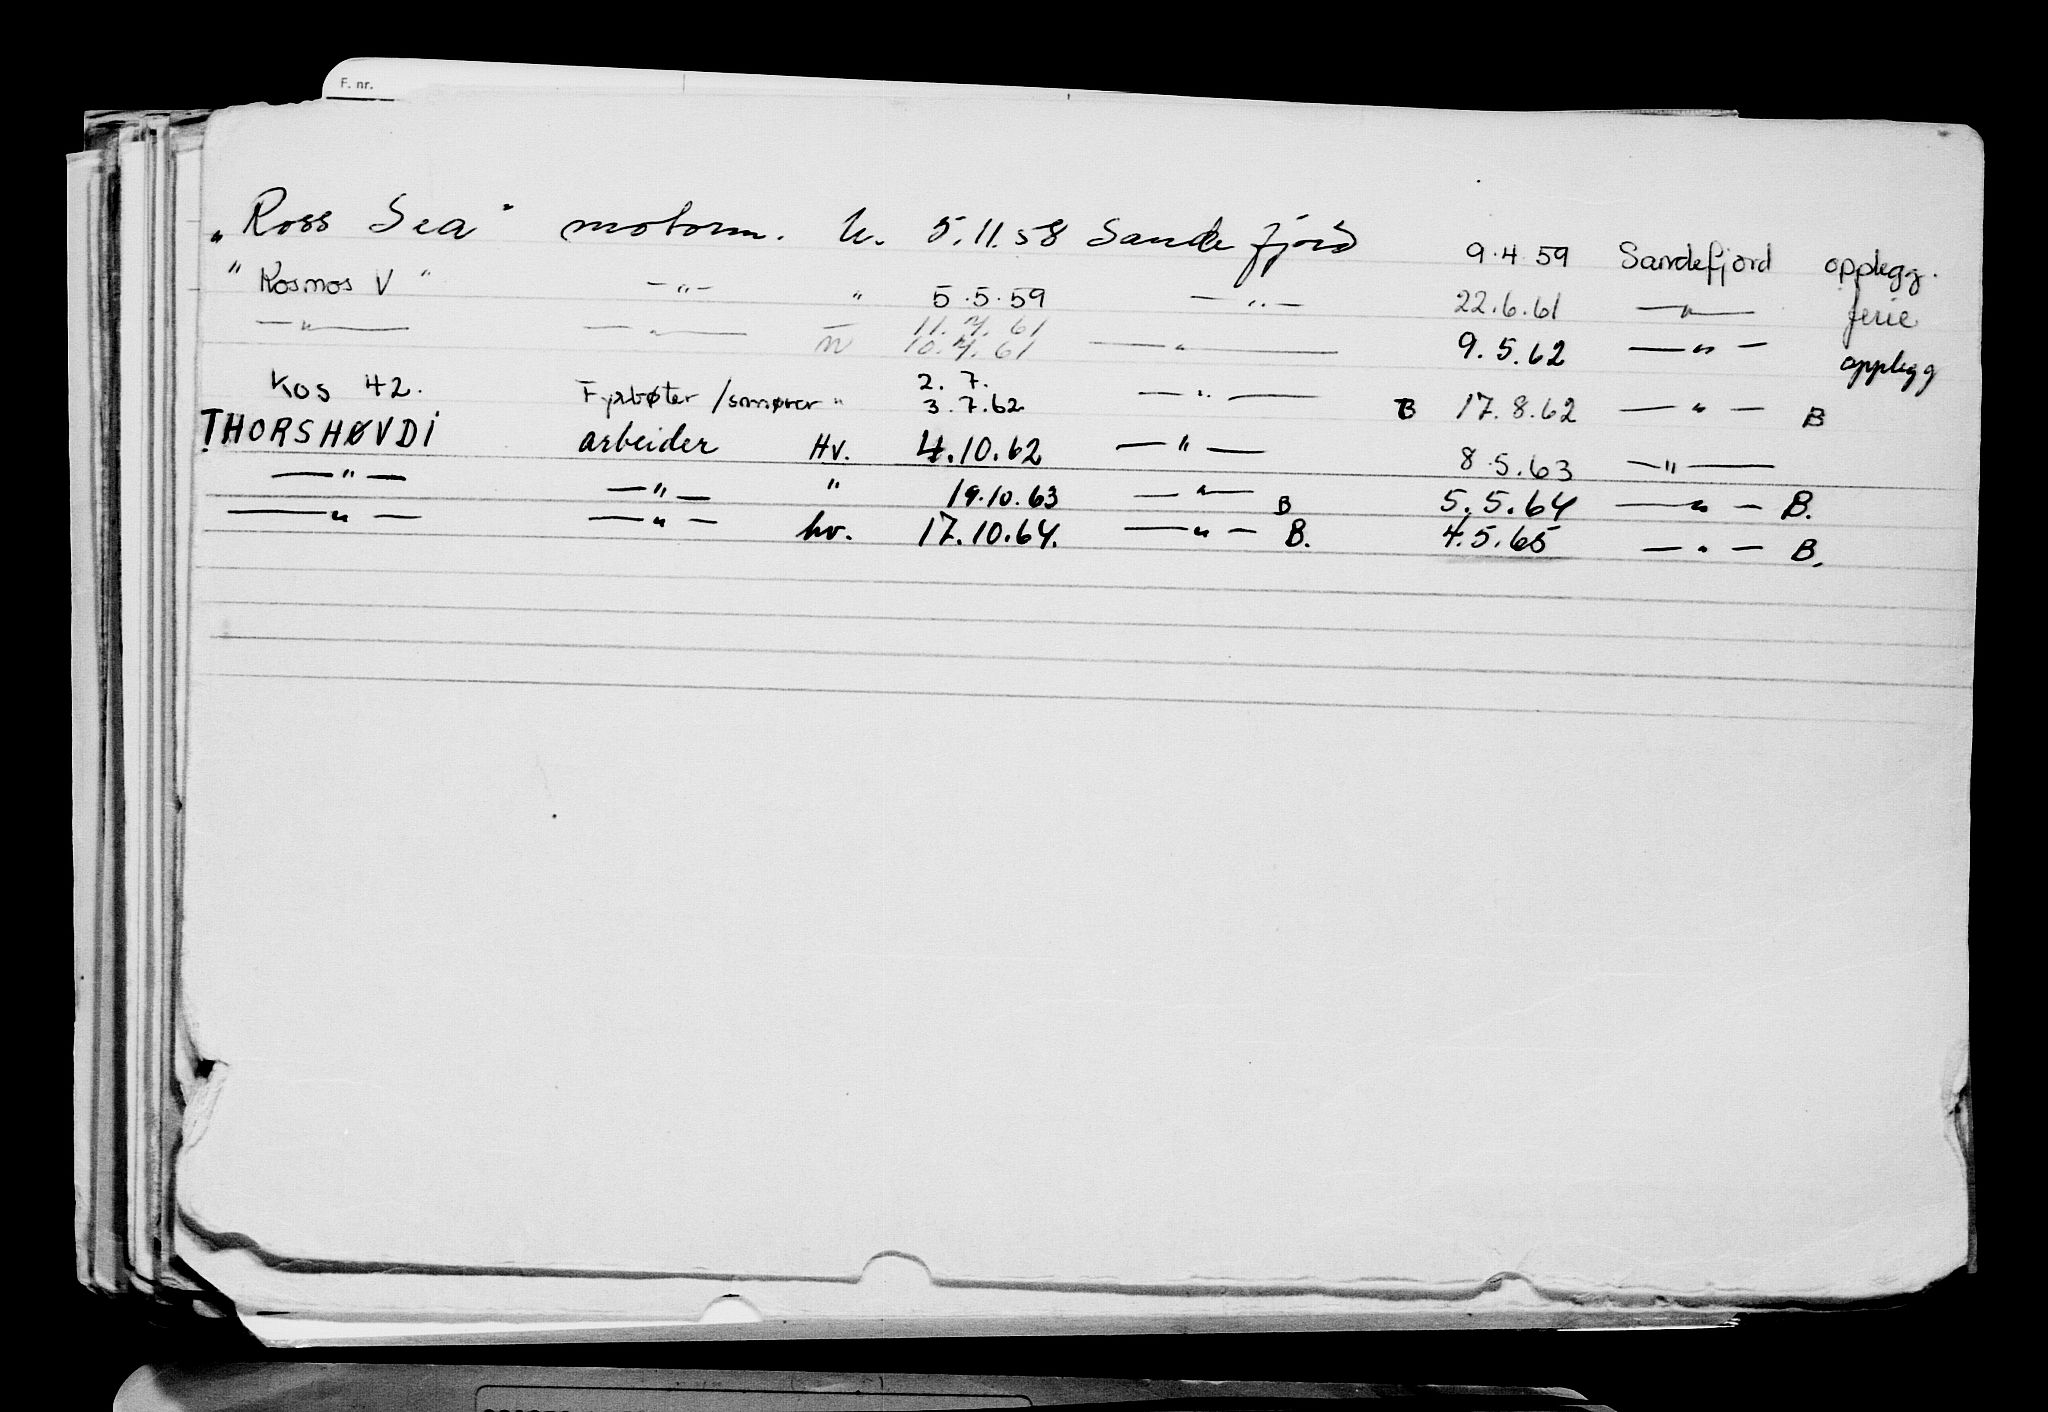 F. nr.
„Ross Sea" motorm. u. 5.11.58 Sandefjord 9.4.59 Sandefjord opplegg.
"Kosmos V" —"— " 5.5.59 —"— 22.6.61 —"— ferie
—"— —"— — 11.7.61
10.7.61 —"— 9.5.62 —"— opplegg
Kos 42. Fyrbøter/smører " 2.7.
3.7.62 —"— B 17.8.62 —"— B
THORSHØVDI arbeider Hv. 4.10.62 —"— 8.5.63 —"—
—"— —"— " 19.10.63 —"— B 5.5.64 —"— B.
—"— —"— hv. 17.10.64. —"— B. 4.5.65 —"— B.